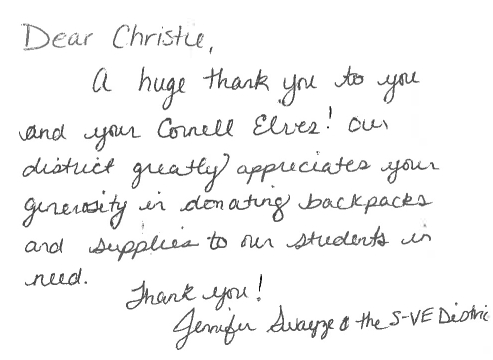 Dear Christie,
A huge thank you to you
and your Cornell Elves! Our
district greatly appreciates your
generosity in donating backpacks
and supplies to our students in
need.
Thank you!
Jennifer Swayze & the S-VE Distric